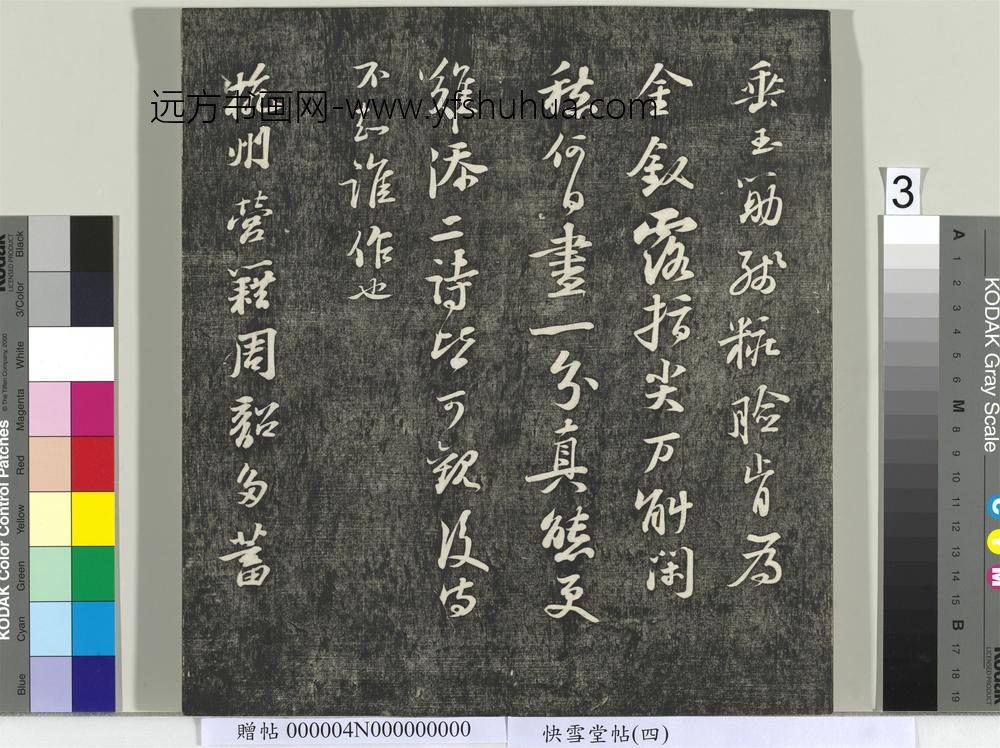 垂玉筯残粧脸肯为
金钗露指尖万斛闲
愁何日尽一分真態更
难添二詩皆可觀後詩
不知谁作也
蘇州营籍周韶多蓄
远方书画网-www.yfshuhua.com
3
贈帖 000004N000000000
快雪堂帖(四)
KODAK Color Control Patches
© The Tiffen Company, 2000
Kodak
LICENSED PRODUCT
Blue
Cyan
Green
Yellow
Red
Magenta
White
3/Color
Black
KODAK Gray Scale
C
Y
M
Kodak
LICENSED PRODUCT
A
1
2
3
4
5
6
M
8
9
10
11
12
13
14
15
B
17
18
19